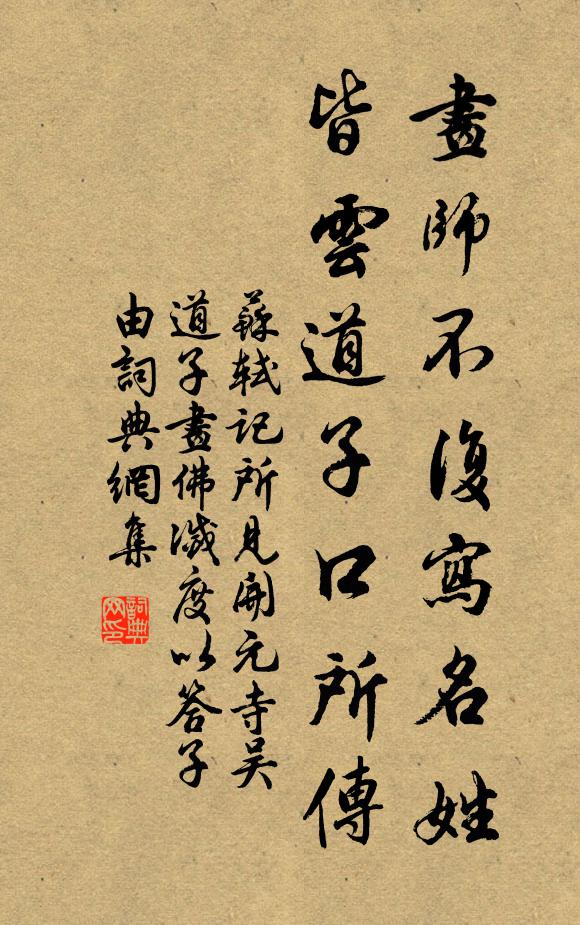 畫師不復寫名姓
皆雲道子口所傳
蘇軾記所見開元寺吳
道子畫佛滅度以答子
由詞典網集
詞典
网印